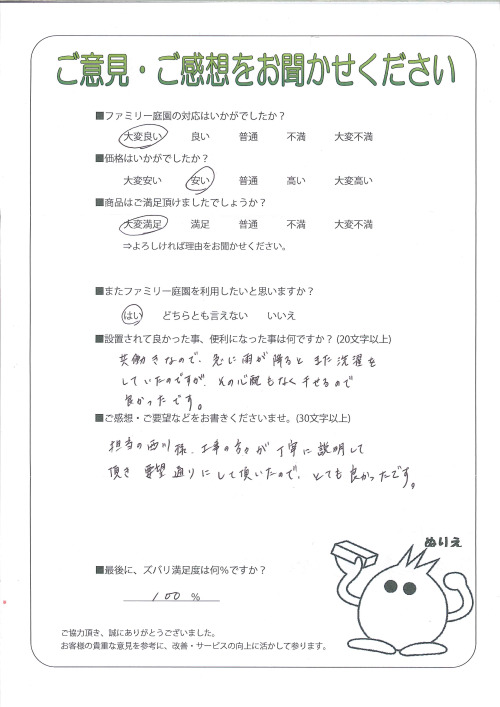 ご意見・ご感想をお聞かせください
■ファミリー庭園の対応はいかがでしたか？
大変良い 良い 普通 不満 大変不満
■価格はいかがでしたか？
大変安い 安い 普通 高い 大変高い
■商品はご満足頂けましたでしょうか？
大変満足 満足 普通 不満 大変不満
⇒よろしければ理由をお聞かせください。
■またファミリー庭園を利用したいと思いますか？
はい どちらとも言えない いいえ
■設置されて良かった事、便利になった事は何ですか？(20文字以上)
共働きなので、急に雨が降ると また洗濯を
していたのですが、その心配もなく干せるので
良かったです。
■ご感想・ご要望などをお書きくださいませ。(30文字以上)
担当の西川様、工事の方々が丁寧に説明して
頂き 要望通りにして頂いたので、とても良かったです。
ぬりえ
■最後に、ズバリ満足度は何％ですか？
100 %
ご協力頂き、誠にありがとうございました。
お客様の貴重な意見を参考に、改善・サービスの向上に活かして参ります。